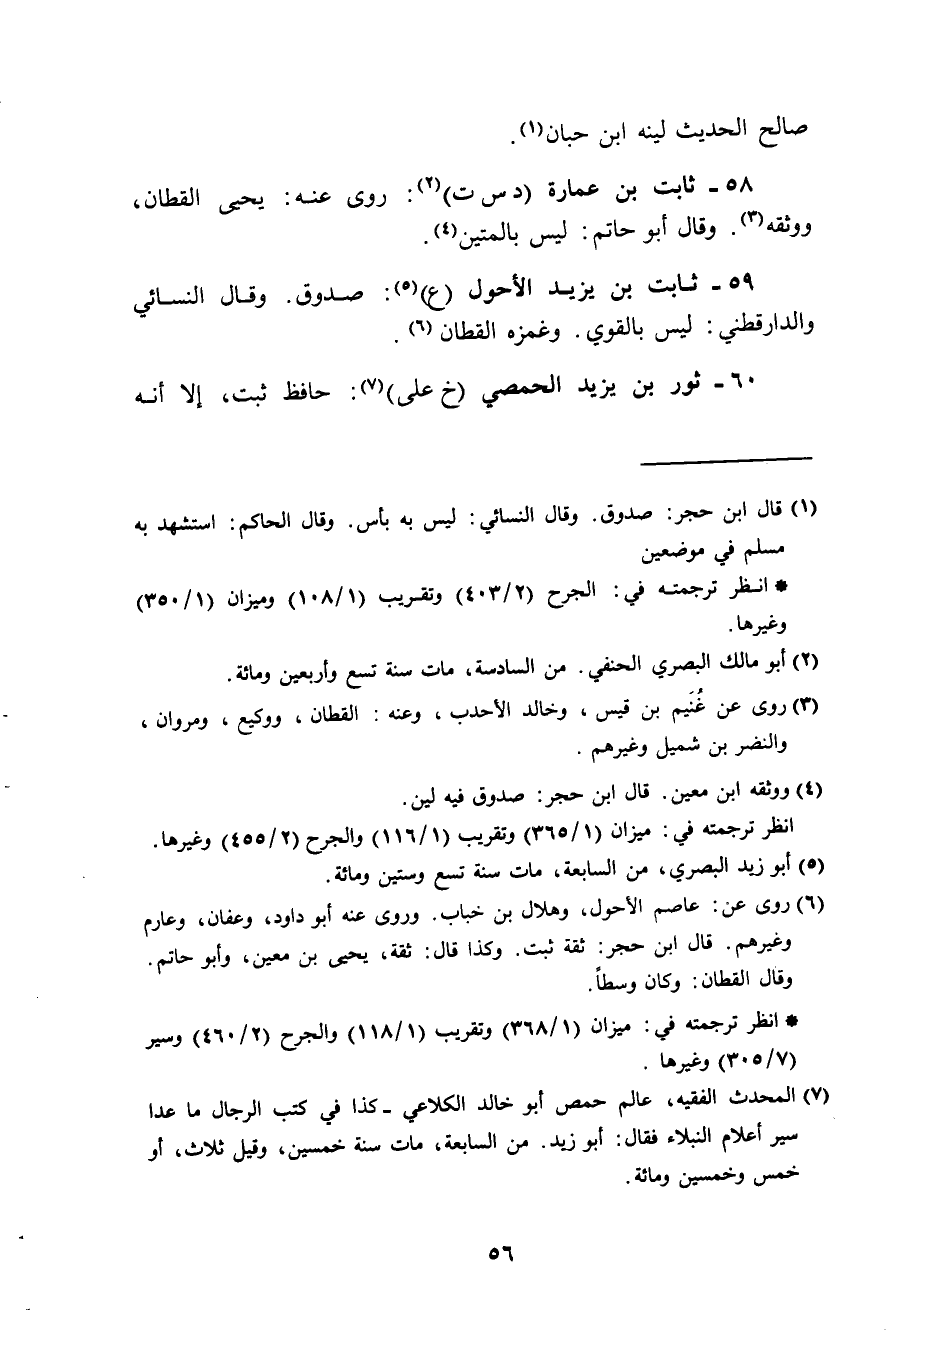 صالح الحديث لينه ابن حبان(١).
٥٨ ـ ثابت بن عمارة (د س ت)(٢): روى عنه: يحيى القطان،
ووثقه(٣). وقال أبو حاتم: ليس بالمتين(٤).
٥٩ ـ ثابت بن يزيد الأحول (ع)(٥): صدوق. وقال النسائي
والدارقطني: ليس بالقوي. وغمزه القطان(٦).
٦٠ ـ ثور بن يزيد الحمصي (خ على)(٧): حافظ ثبت، إلا أنه
(١) قال ابن حجر: صدوق. وقال النسائي: ليس به بأس. وقال الحاكم: استشهد به
مسلم في موضعين
* انظر ترجمته في: الجرح (٤٠٣/٢) وتقريب (١٠٨/١) وميزان (٣٥٠/١)
وغيرها.
(٢) أبو مالك البصري الحنفي. من السادسة، مات سنة تسع وأربعين ومائة.
(٣) روى عن غُنَيم بن قيس، وخالد الأحدب، وعنه: القطان، ووكيع، ومروان،
والنضر بن شميل وغيرهم.
(٤) ووثقه ابن معين. قال ابن حجر: صدوق فيه لين.
انظر ترجمته في: ميزان (٣٦٥/١) وتقريب (١١٦/١) والجرح (٤٥٥/٢) وغيرها.
(٥) أبو زيد البصري، من السابعة، مات سنة تسع وستين ومائة.
(٦) روى عن: عاصم الأحول، وهلال بن خباب. وروى عنه أبو داود، وعفان، وعارم
وغيرهم. قال ابن حجر: ثقة ثبت. وكذا قال: ثقة، يحيى بن معين، وأبو حاتم.
وقال القطان: وكان وسطاً.
* انظر ترجمته في: ميزان (٣٦٨/١) وتقريب (١١٨/١) والجرح (٤٦٠/٢) وسير
(٣٠٥/٧) وغيرها.
(٧) المحدث الفقيه، عالم حمص أبو خالد الكلاعي ـ كذا في كتب الرجال ما عدا
سير أعلام النبلاء فقال: أبو زيد. من السابعة، مات سنة خمسين، وقيل ثلاث، أو
خمس وخمسين ومائة.
٥٦